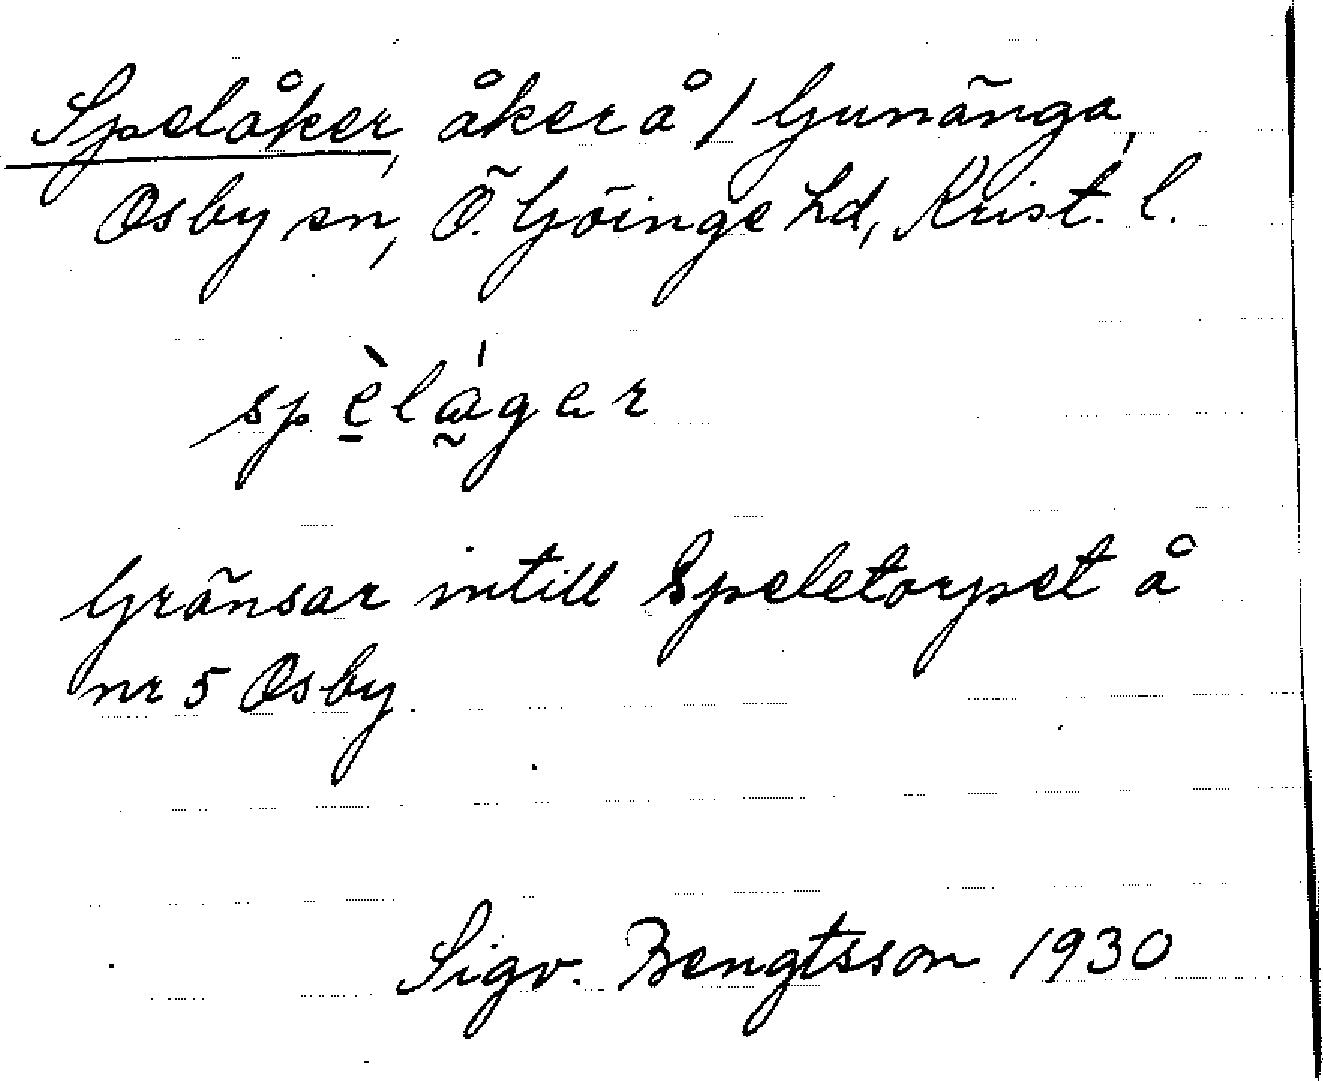 Spelåker, åker å 1 Gunänga,
Osby sn, Ö. Göinge hd, Krist. l.
spèlá̰ger
Gränsar intill Speletorpet å
nr 5 Osby.
Sigv. Bengtsson 1930